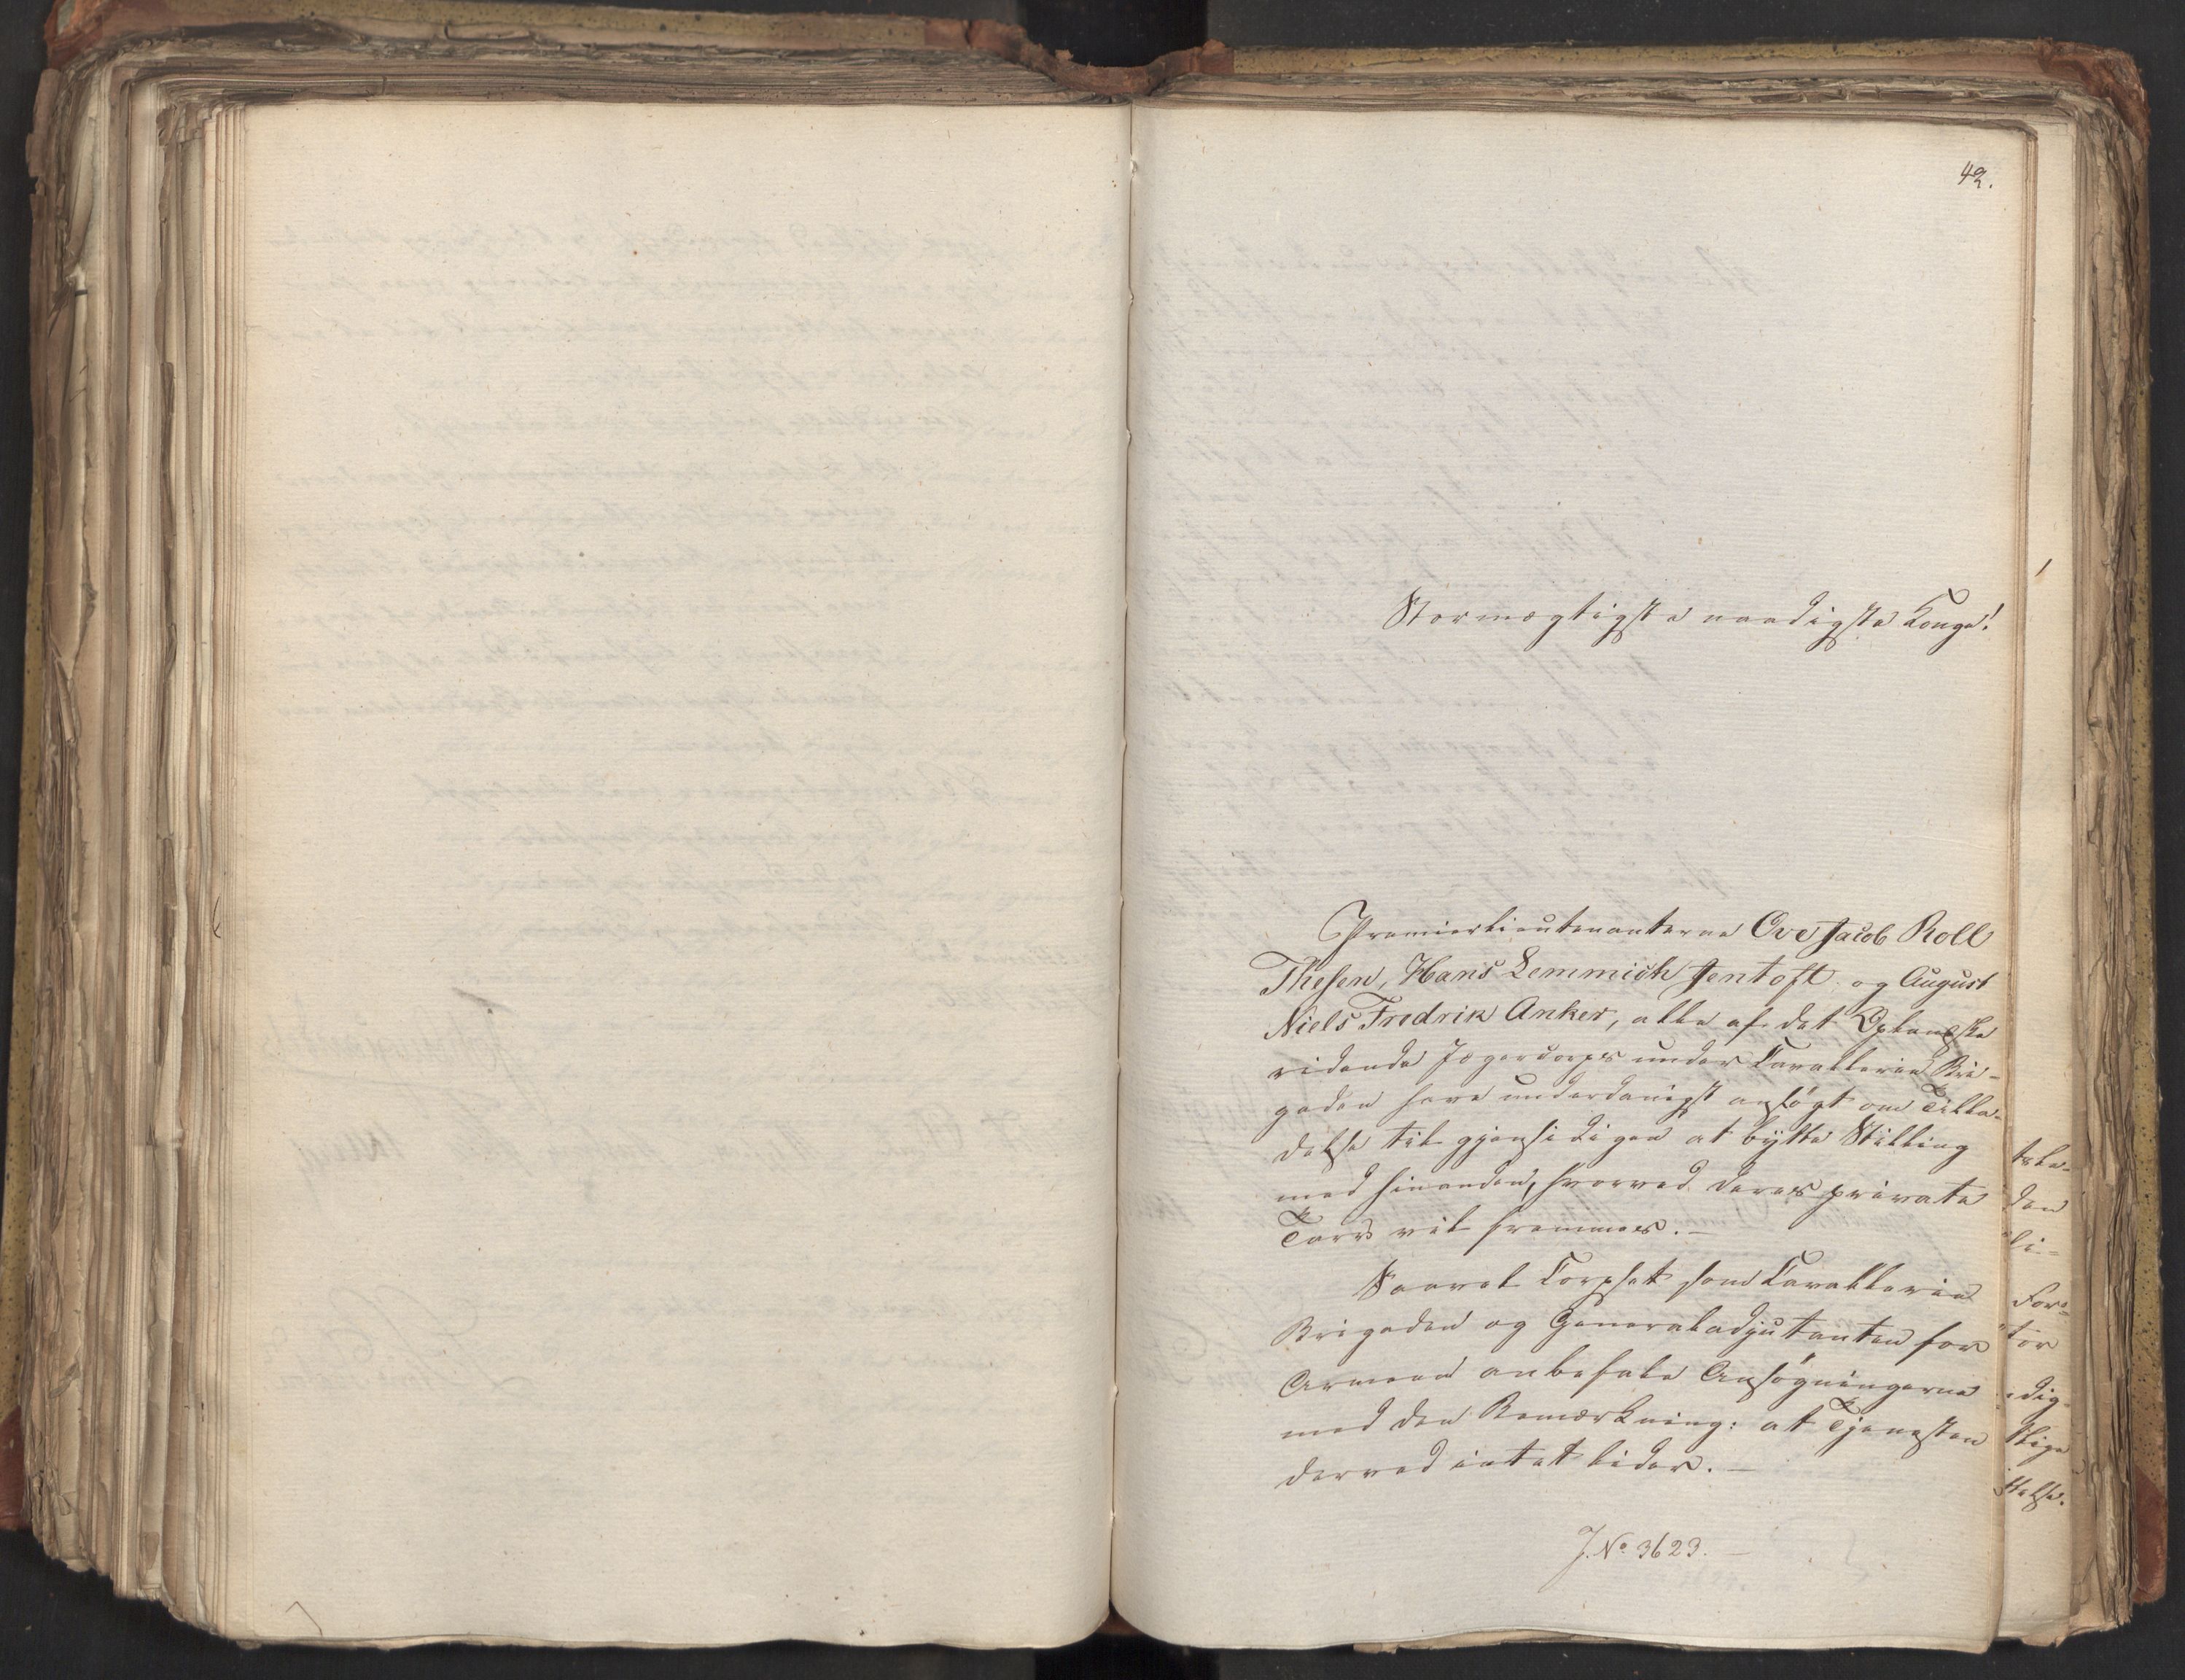 42.
Stormægtigste naadigste Konge!
Premierlieutenanterne Ove Jacob Roll
Thesen, Hans Lemmich Jentoft og August
Niels Fredrik Anker, alle af det Oplandske
ridende Jægercorps under Cavallerie Bri-
gaden have underdanigst ansøgt om Tilla-
delse til gjensidigen at bytte Stilling
med hinanden, hvorved deres private
Tarv vil fremmes. —
Saavel Corpset som Cavallerie
Brigaden og Generaladjutanten for
Armeen anbefale Ansøgningerne
med den Bemærkning: at Tjenesten
derved intet lider. —
J. No 3623. —
den
li-
For-
tor
dig-